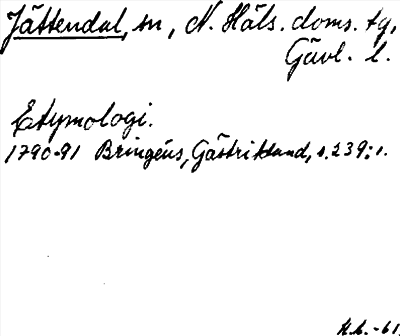 Jättendal, sn, N. Häls. doms. tg,
Gävl. l.
Etymologi.
1790-91 Bringéus, Gästrikland, s. 239: 1.
H.L. -61.